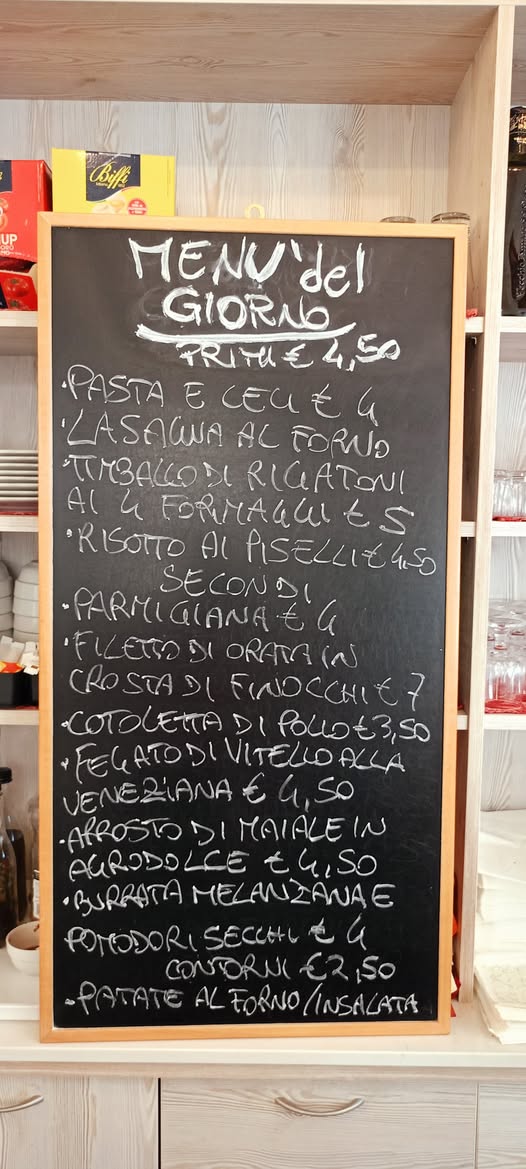 Biffi
UP
MENU' del
GIORNO
PRIMI € 4,50
•PASTA E CECI € 4
•LASAGNA AL FORNO
•TIMBALLO DI RIGATONI
AI 4 FORMAGGI € 5
•RISOTTO AI PISELLI € 4,50
SECONDI
•PARMIGIANA € 4
•FILETTO DI ORATA IN
CROSTA DI FINOCCHI € 7
•COTOLETTA DI POLLO € 3,50
•FEGATO DI VITELLO ALLA
VENEZIANA € 4,50
•ARROSTO DI MAIALE IN
AGRODOLCE € 4,50
•BURRATA MELANZANA E
POMODORI SECCHI € 4
CONTORNI € 2,50
•PATATE AL FORNO/INSALATA